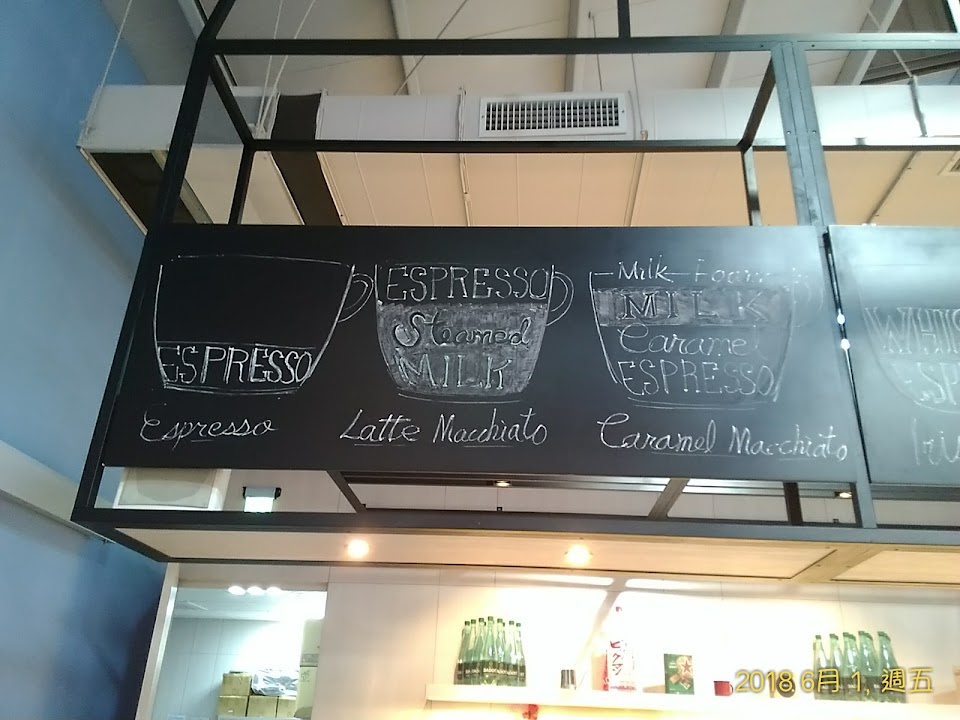 ESPRESSO
Espresso
ESPRESSO
Steamed
MILK
Latte Macchiato
Milk Foam
MILK
Caramel
ESPRESSO
Caramel Macchiato
2018 6月 1, 週五